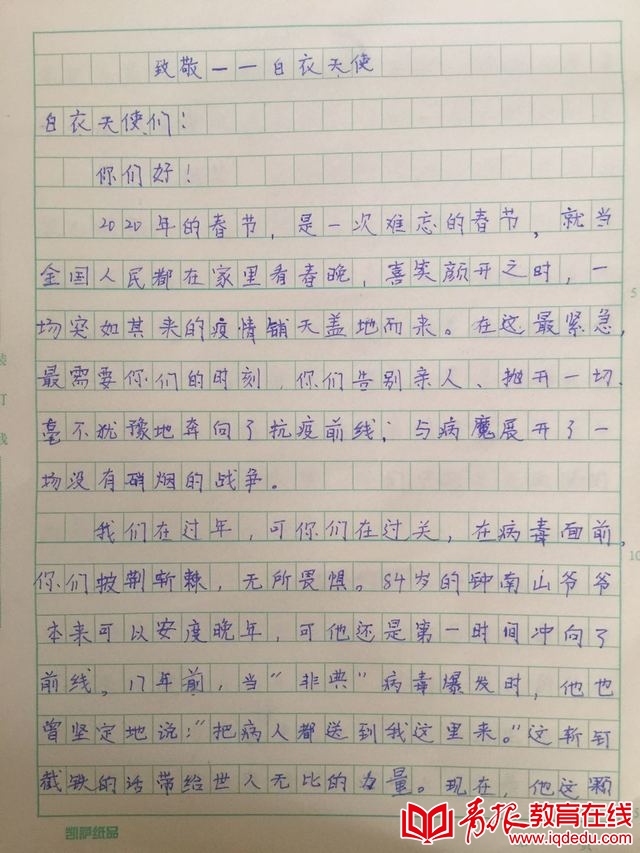 致敬——白衣天使
白衣天使们：
你们好！
2020年的春节，是一次难忘的春节，就当
全国人民都在家里看春晚，喜笑颜开之时，一
场突如其来的疫情铺天盖地而来。在这最紧急，
最需要你们的时刻，你们告别亲人、抛开一切，
毫不犹豫地奔向了抗疫前线；与病魔展开了一
场没有硝烟的战争。
我们在过年，可你们在过关，在病毒面前，
你们披荆斩棘，无所畏惧。84岁的钟南山爷爷
本来可以安度晚年，可他还是第一时间冲向了
前线，17年前，当“非典”病毒爆发时，他也
曾坚定地说：“把病人都送到我这里来。”这斩钉
截铁的话带给世人无比的力量。现在，他这颗
凯萨纸品
5
10
装
订
线
青报教育在线
www.iqdedu.com